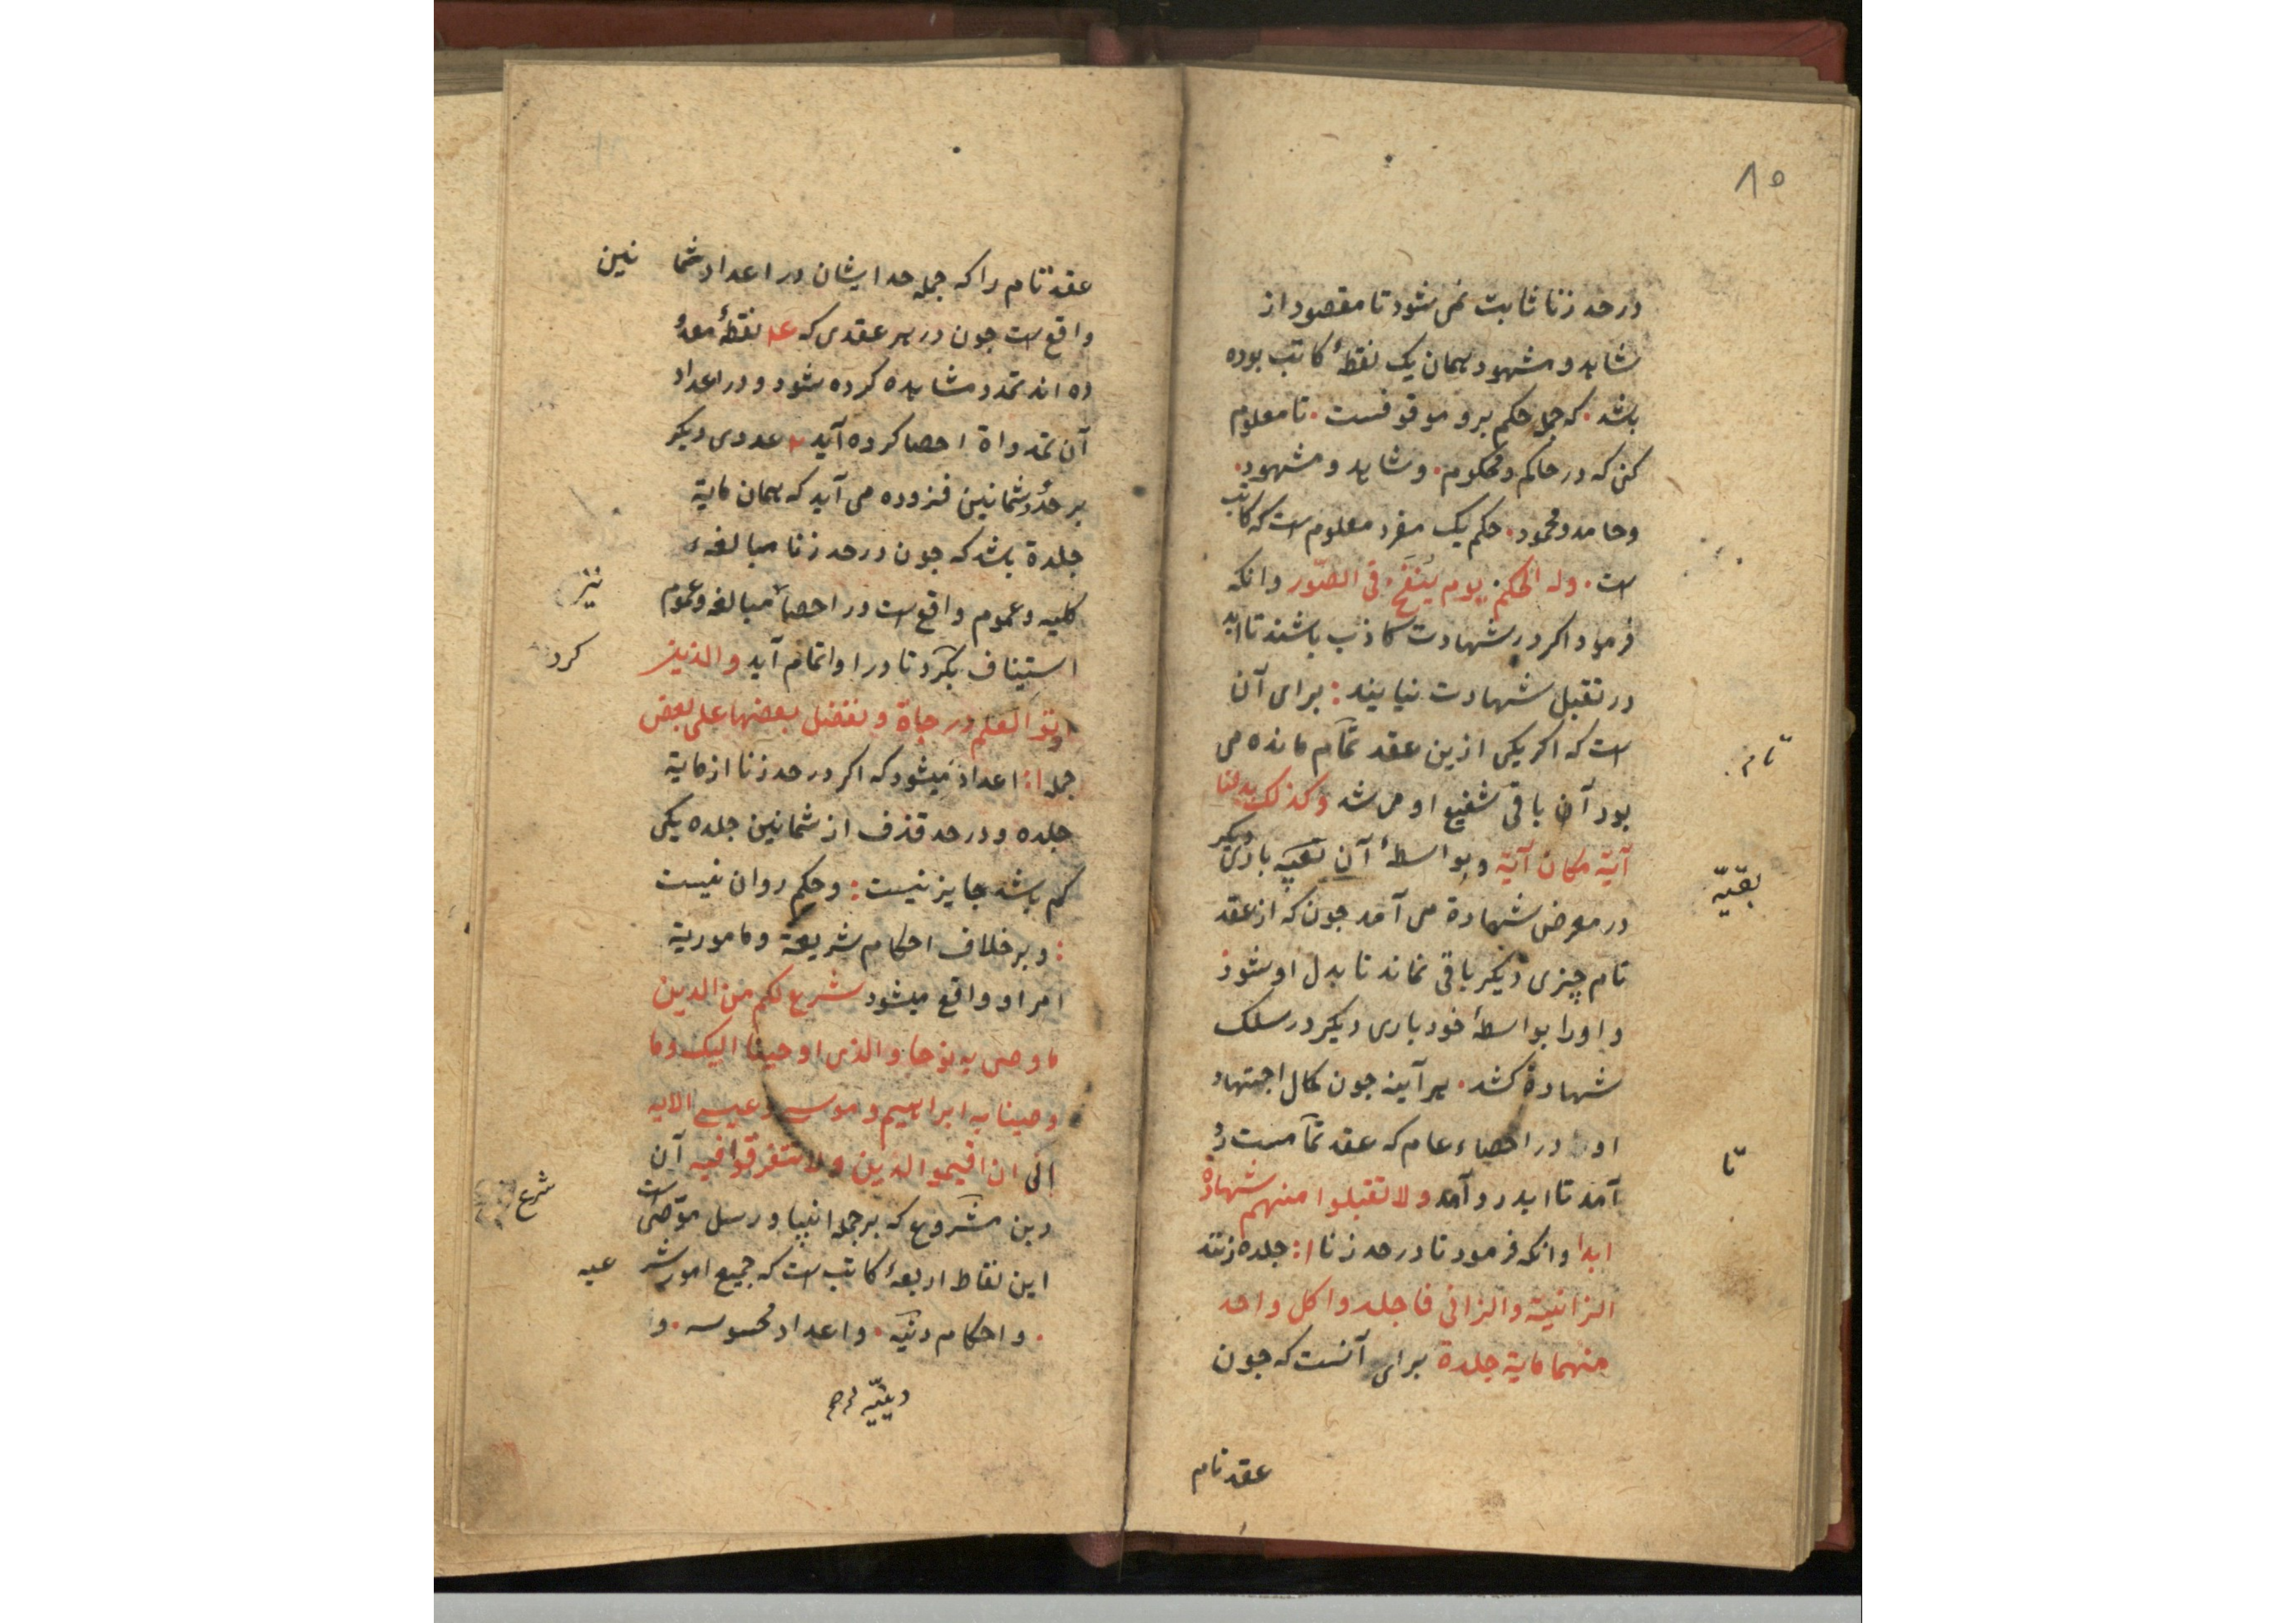 ۸۵
در حد زنا ثابت نمی شود تا مقصود از
شاهد و مشهود همان یک نقطهٔ کاتب بوده
باشد . که جمله حکم برو موقوفست . تا معلوم
کنی که در حاکم و محکوم . و شاهد و مشهود .
و حامد و محمود . حکم یک مفرد معلوم است که کاتب
است . وله الحکم یوم ینفخ فی الصّور وانکه
فرمود اکر در شهادت کاذب باشند تا ابد
در تقبل شهادت نیایند : برای آن
است که اکر یکی ازین عقد تمام مانده می
تام
بود آن باقی شفیع او می شد وکذلک بدلنا
آیة مکان آیة وبواسطهٔ آن بقیه باری دیکر
بقیّه
در معرض شهادة می آمد جون که از عقد
تام چیزی دیکر باقی نماند تا بدل او شود
واورا بواسطهٔ خود باری دیکر در سلک
شهادة کشد . هر آینه جون کمال اجتهاد
او در احصاء عام که عقد تمامست رد
تا
آمد تا ابد رد آمد ولا تقبلوا منهم شهادة
ابدا وانکه فرمود تا در حد زنا ا: جلده زنند
الزانیة والزانی فاجلدوا کل واحد
منهما مایة جلدة برای آنست که جون
عقد تام
عقد تام را که جمله حد ایشان در اعداد ثما نین
واقع است جون در هر عقدی که نقطهٔ معدو
ده اند تمدد مشاهده کرده شود و در اعداد
آن تمدد اة احصا کرده آید عددی دیکر
بر حد ثمانین فزوده می آید که همان مایة
جلدة باشد که جون در حد زنا مبالغهء
کلیه وعموم واقع است در احصا مبالغه وعموم
نیز
استیناف بکرد تا در او اتمام آید والذین
کرد
اوتو العلم درجاة ونفضل بعضها علی بعض
جمله ا: اعداد میشود که اکر در حد زنا از مایة
جلده و در حد قذف از ثمانین جلده یکی
کم باشد جایز نیست : وحکم روان نیست
: و بر خلاف احکام شریعة و ماموریة
امر او واقع میشود شرع لکم من الدین
ما وصی به نوحا والذی اوحینا الیک وما
وصینا به ابراهیم وموسی وعیسی الایه
الی ان اقیموا الدین ولا تتفرقوا فیه آن
دین مشروع که بر جمله انبیا ورسل موصّی است
شرع
این نقاط اربعهٔ کاتب است که جمیع امور شر عیه
. و احکام دنیّه . واعداد محسوسه . و
دینیّه